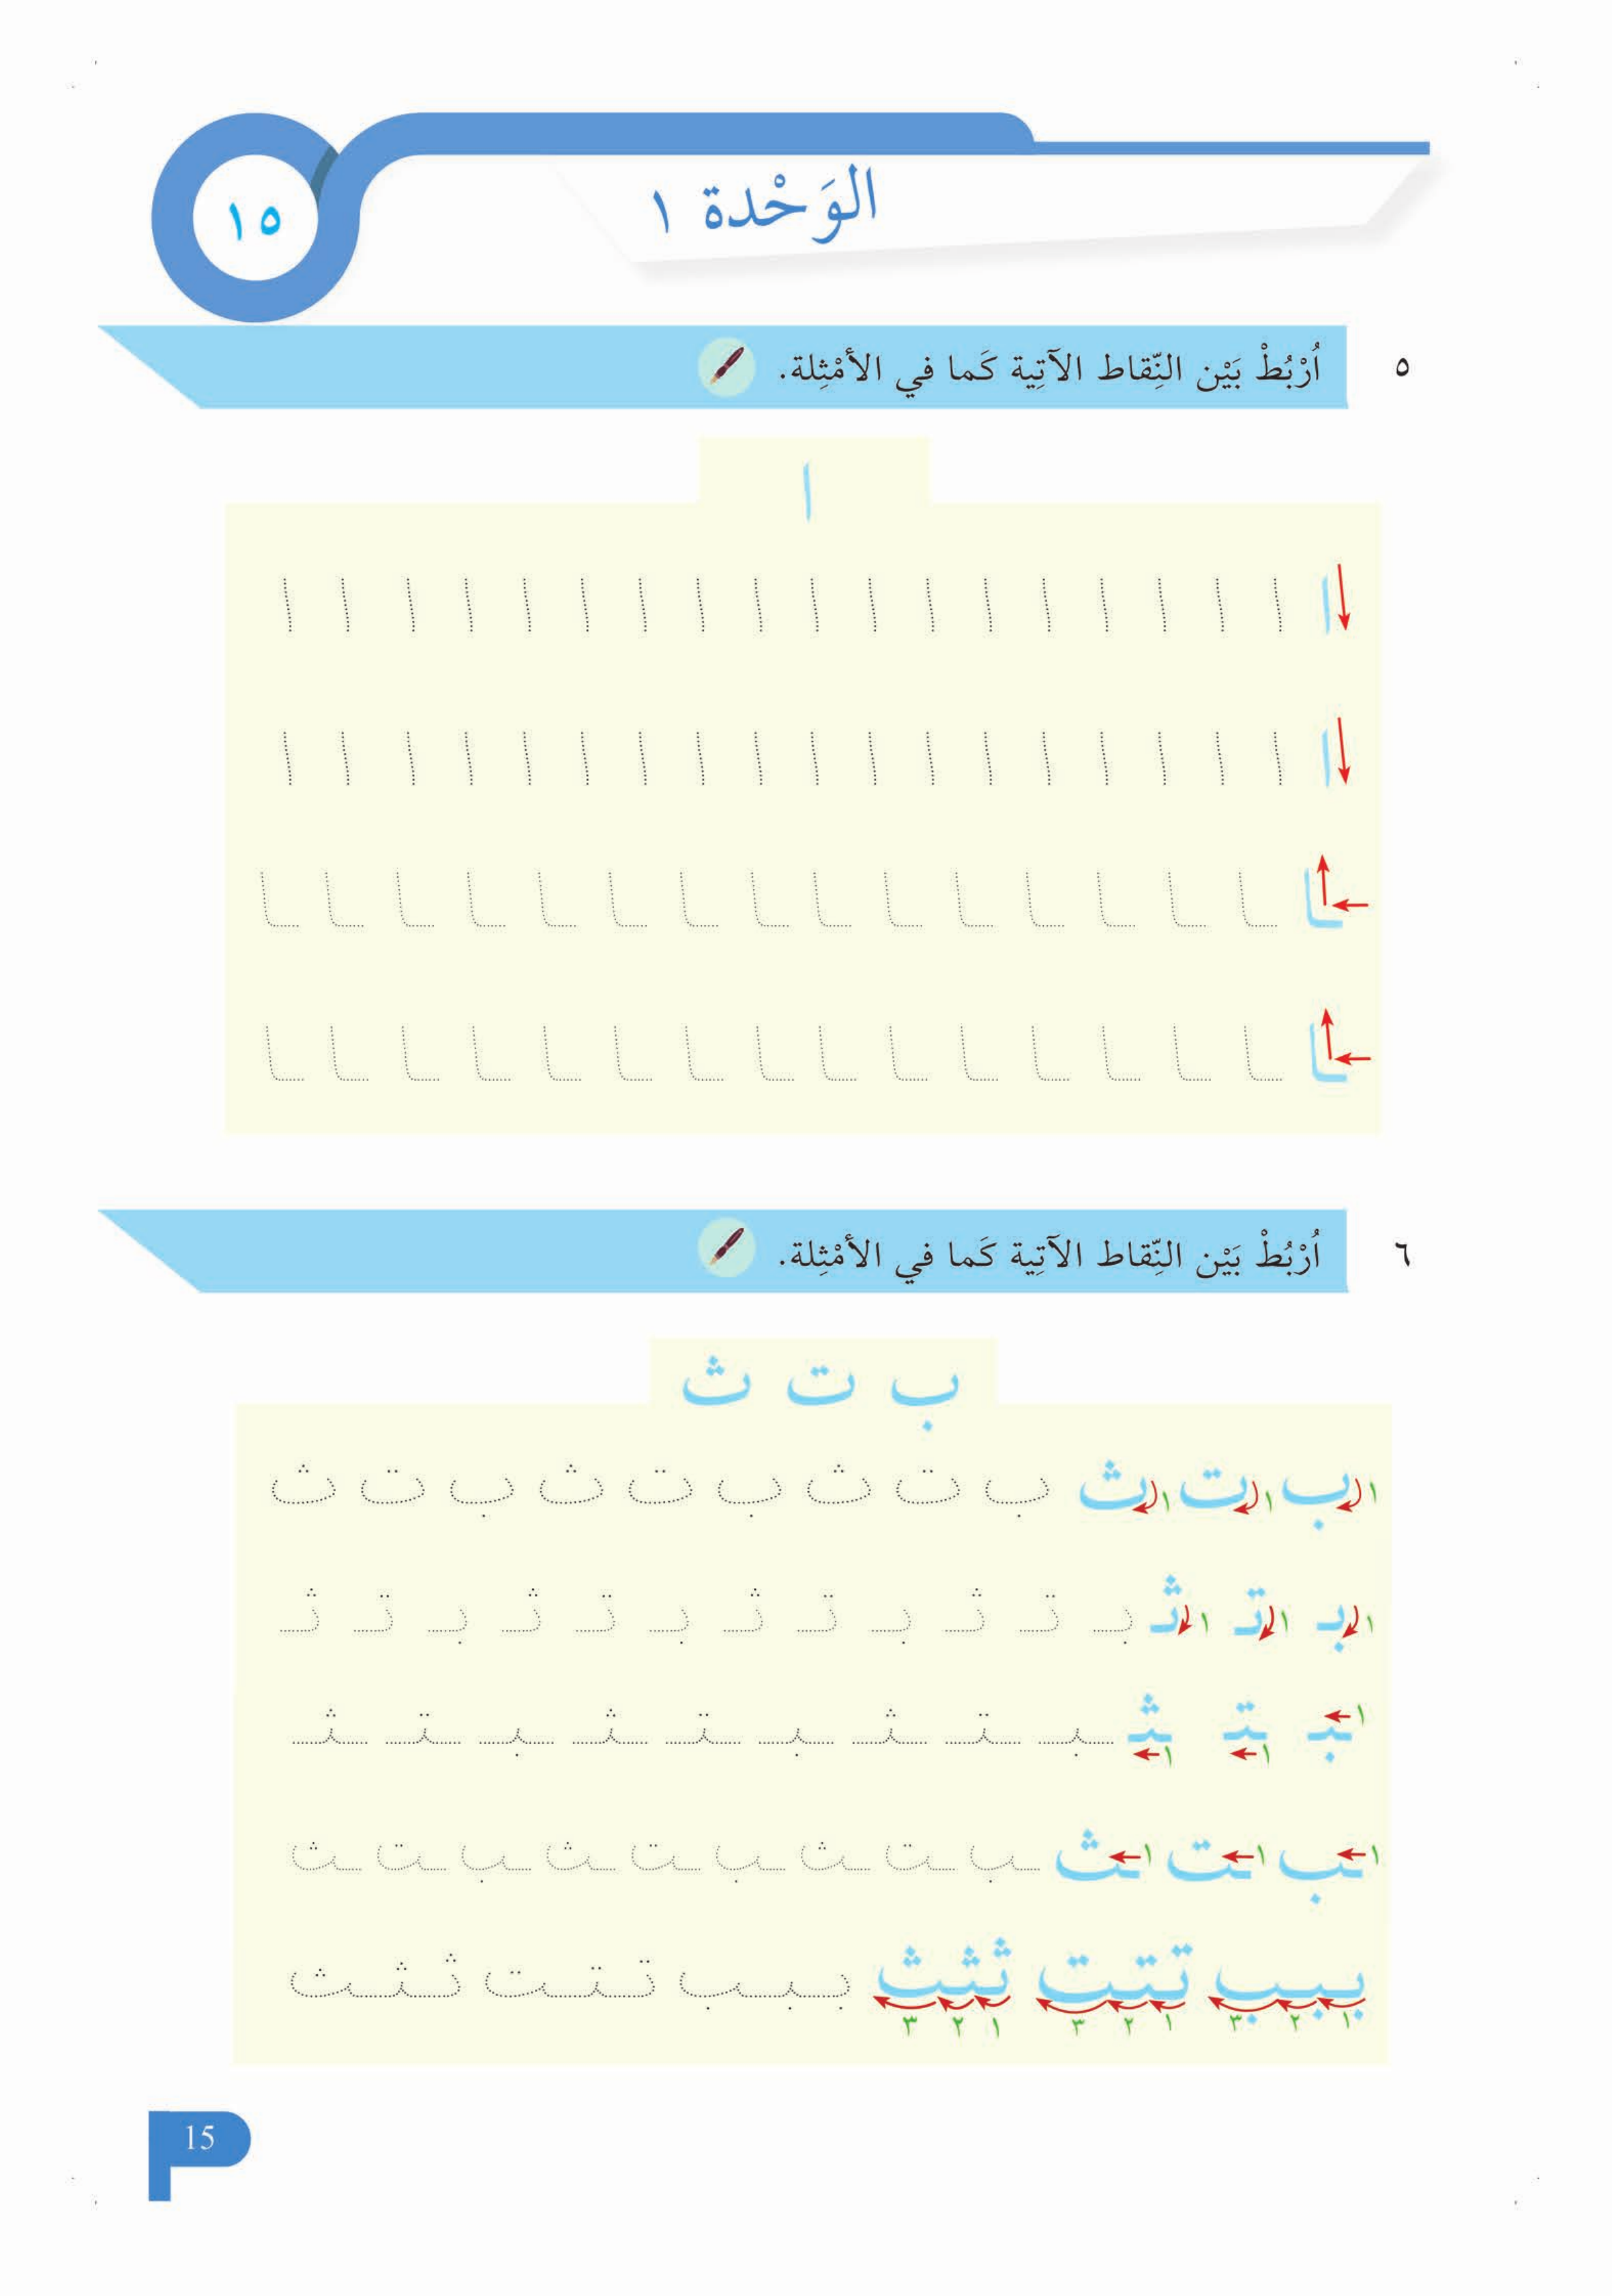 الوَحْدة ١
١٥
٥ اُرْبُطْ بَيْن النِّقاط الآتِية كَما في الأمْثِلة.
ا
ا ا ا ا ا ا ا ا ا ا ا ا ا ا ا ا ا ا ا
ا ا ا ا ا ا ا ا ا ا ا ا ا ا ا ا ا ا ا
ـا ـا ـا ـا ـا ـا ـا ـا ـا ـا ـا ـا ـا ـا ـا ـا
ـا ـا ـا ـا ـا ـا ـا ـا ـا ـا ـا ـا ـا ـا ـا ـا
٦ اُرْبُطْ بَيْن النِّقاط الآتِية كَما في الأمْثِلة.
ب ت ث
١ ب ١ ت ١ ث ب ت ث ب ت ث ب ت ث
١ بـ ١ تـ ١ ثـ بـ تـ ثـ بـ تـ ثـ بـ تـ ثـ بـ تـ ثـ
١ ـبـ ١ ـتـ ١ ـثـ ـبـ ـتـ ـثـ ـبـ ـتـ ـثـ ـبـ ـتـ ـثـ
١ ـب ١ ـت ١ ـث ـب ـت ـث ـب ـت ـث ـب ـت ـث
ببب تتت ثثث ببب تتت ثثث
١ ٢ ٣ ١ ٢ ٣ ١ ٢ ٣
15